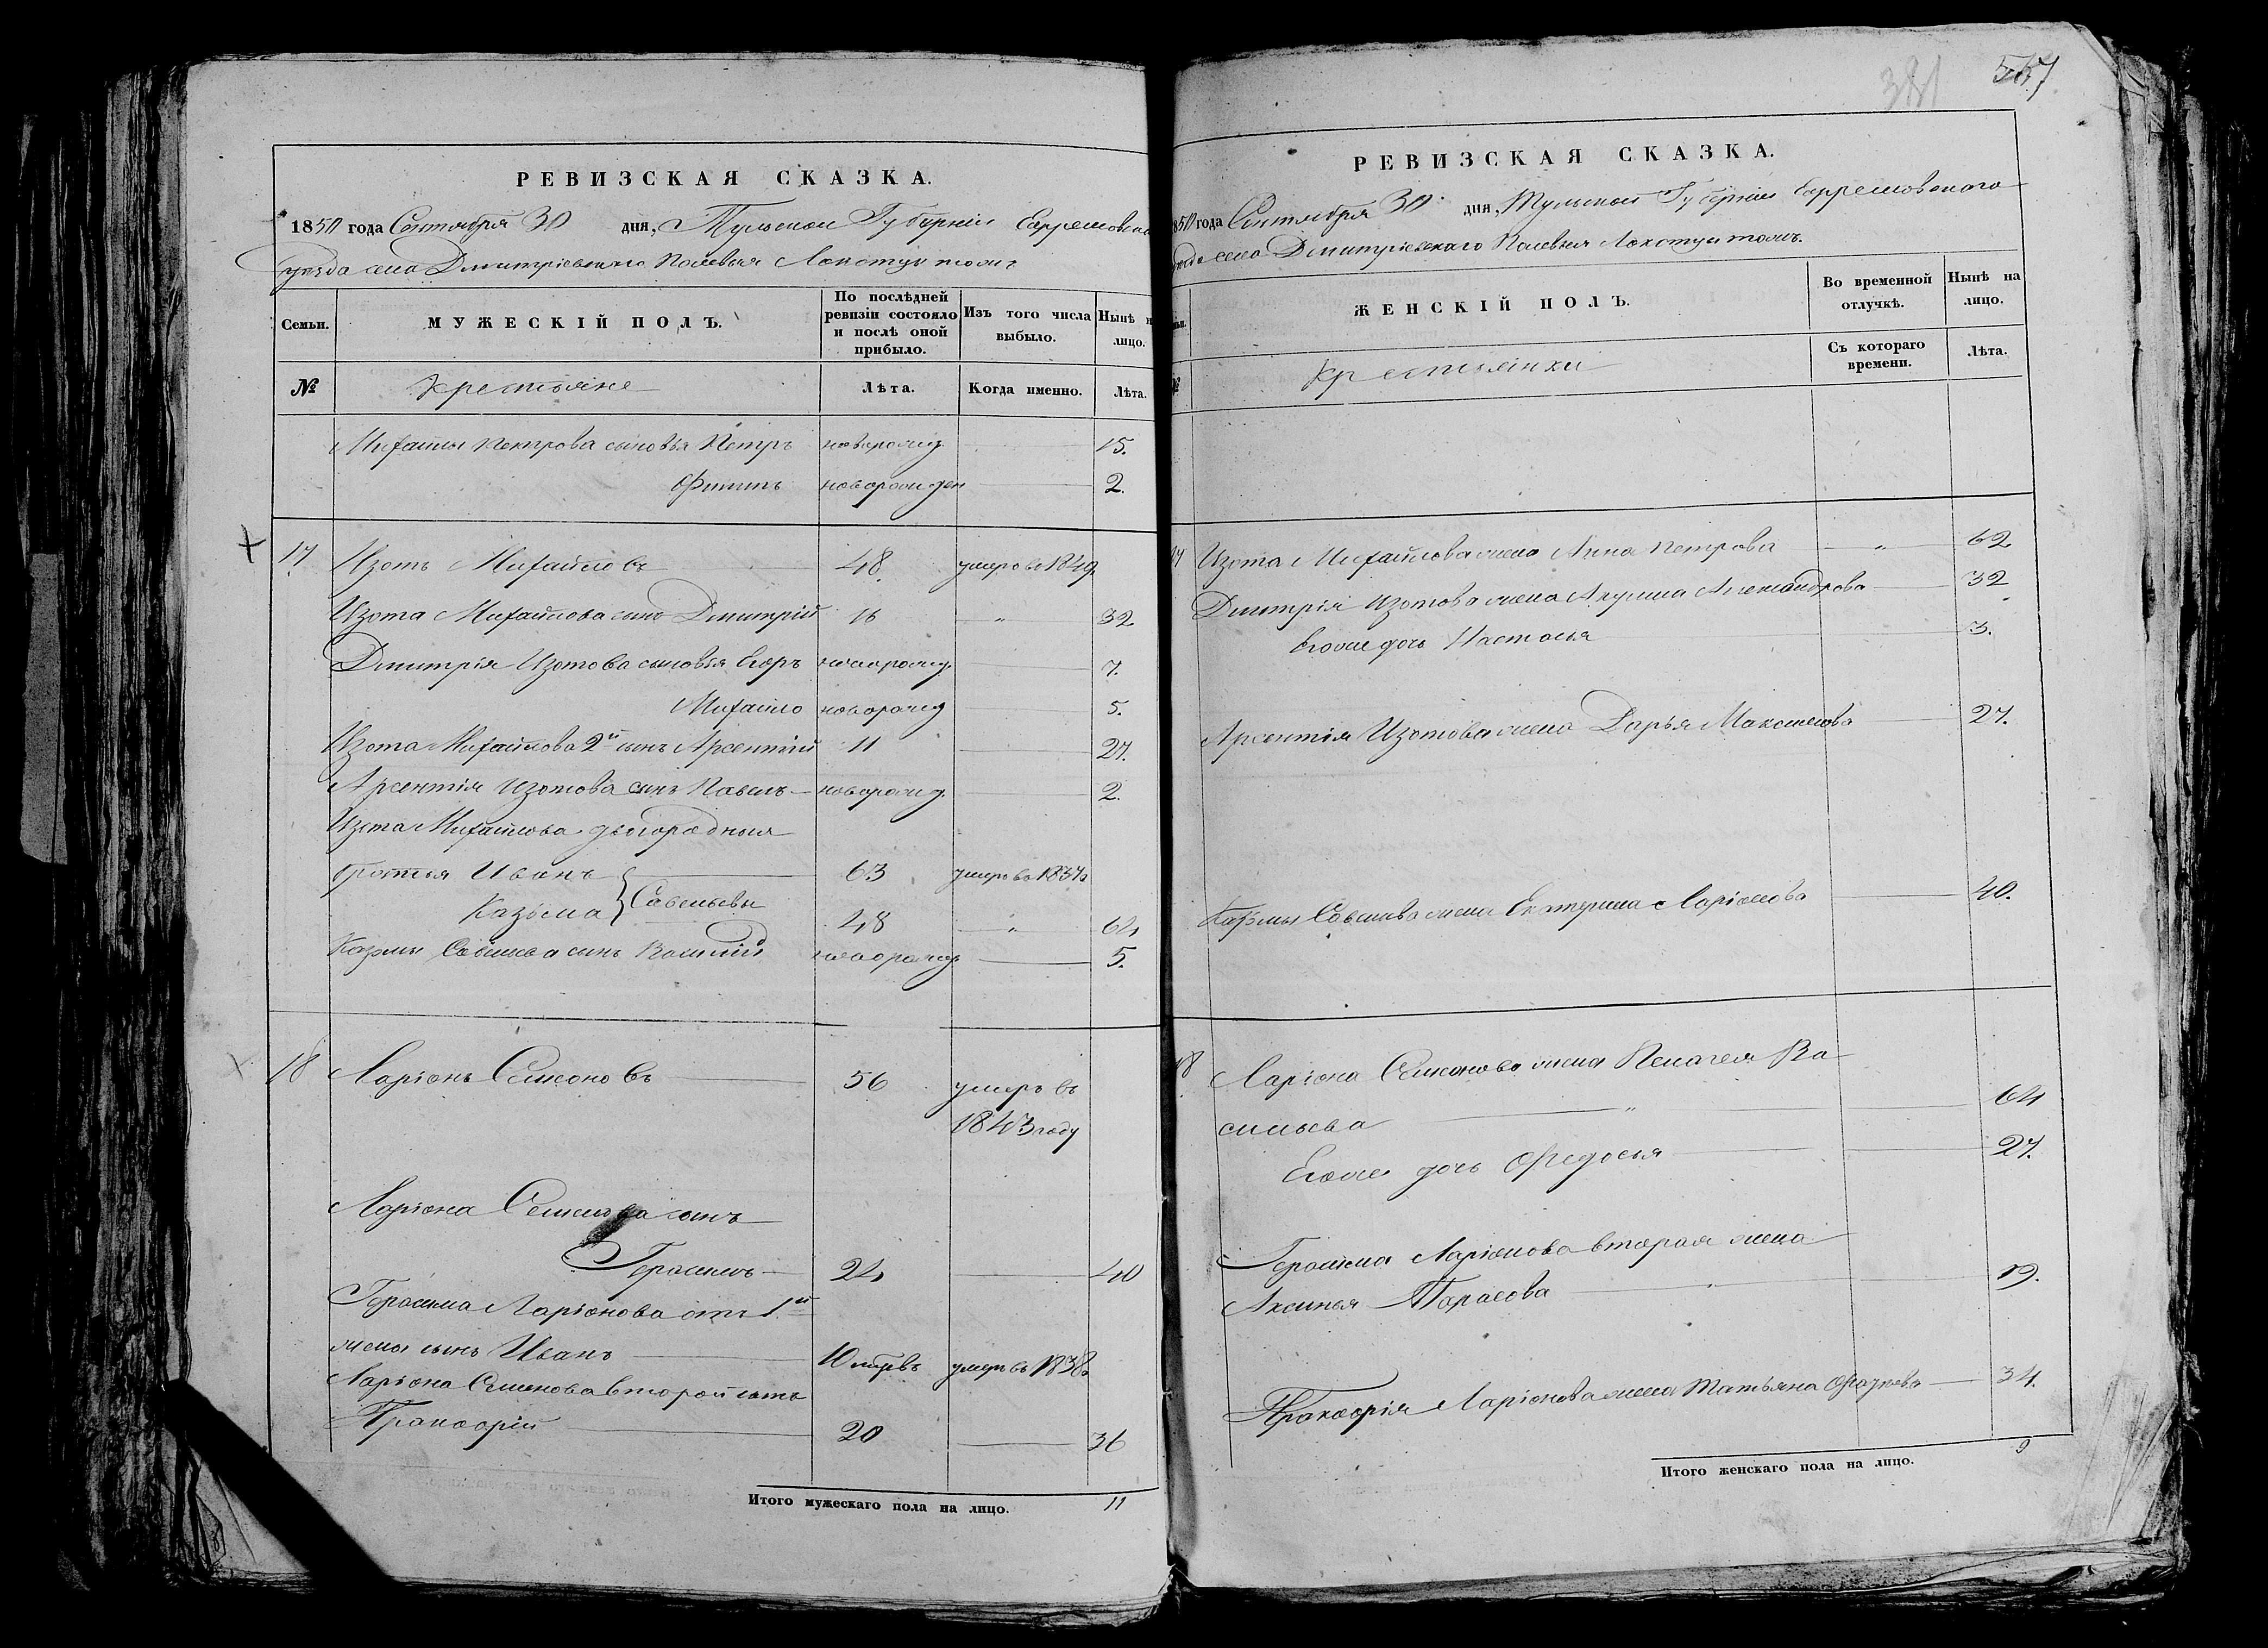 381 567
РЕВИЗСКАЯ СКАЗКА.
1850 года Сентября 30 дня, Тульской Губерніи Ефремовска
уезда села Дмитріевскаго Полевыя Локотцы тожъ
Семьи.
МУЖЕСКІЙ ПОЛЪ.
По послѣдней ревизіи состояло и послѣ оной прибыло.
Изъ того числа выбыло.
Нынѣ н лицо.
№
крестьяне
Лѣта.
Когда именно.
Лѣта.
Михайлы Петрова сыновья Петръ новорожд. 15.
Филипъ новорожден 2.
17 Изотъ Михайловъ 48. умеръ в 1849
Изота Михайлова сынъ Дмитрій 16 " 32
Дмитрія Изотова сыновья Егоръ новорожд. 7.
Михайло новорожд 5.
Изота Михайлова 2й сынъ Арсентій 11 27.
Арсентія Изотова сынъ Павелъ новорожд. 2.
Изота Михайлова двоюродныя
братья Иванъ 63 умеръ въ 1837
Казьма } Савельевы 48 " 64
Казмы Савельева сынъ Василий новорожд 5.
18 Ларіонъ Семеновъ 56 умеръ въ
1843 году
Ларіона Семенова сынъ
Герасимъ 24 40
Герасима Ларіонова отъ 1й
жены сынъ Иванъ 10 умеръ въ 1838
Ларіона Семенова второй сынъ
20 36
Итого мужескаго пола на лицо. 11
РЕВИЗСКАЯ СКАЗКА.
850 года Сентября 30 дня, Тульской Губерніи Ефремовскаго
уезда села Дмитріевскаго Полевыя Локотцы тожъ.
ЖЕНСКІЙ ПОЛЪ.
Во временной отлучкѣ.
Нынѣ на лицо.
крестьянки
Съ котораго времени.
Лѣта.
17 Изота Михайлова жена Анна Петрова " 62
Дмитрія Изотова жена Акулина Александрова 32
Егоже дочь Настасья 3.
Арсентія Изотова жена Дарья Максимова 27.
Казмы Савельева жена Екатерина Ларіонова 40.
18 Ларіона Семенова жена Пелагея Ва
сильева " 64
Егоже дочь Федосья 27.
Герасима Ларіонова вторая жена
Аксинья Тарасова " 19.
Ларіонова жена Татьяна 34.
Итого женскаго пола на лицо. 9